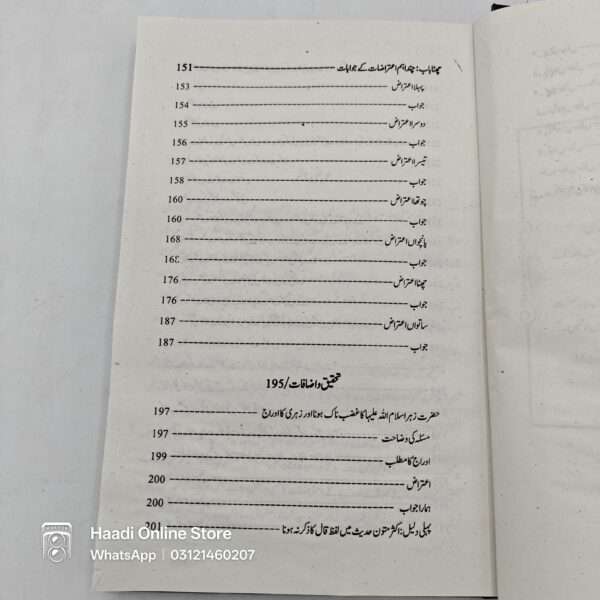 چھٹا باب: چند اہم اعتراضات کے جوابات ---------- 151
پہلا اعتراض ---------- 153
جواب ---------- 154
دوسرا اعتراض ---------- 155
جواب ---------- 156
تیسرا اعتراض ---------- 157
جواب ---------- 158
چوتھا اعتراض ---------- 160
جواب ---------- 160
پانچواں اعتراض ---------- 168
جواب ---------- 168
چھٹا اعتراض ---------- 176
جواب ---------- 176
ساتواں اعتراض ---------- 187
جواب ---------- 187
تحقیق و اضافات/195
حضرت زہرا سلام اللہ علیہا کا غضب ناک ہونا اور زہری کا ادراج ---------- 197
مسئلہ کی وضاحت ---------- 197
ادراج کا مطلب ---------- 199
اعتراض ---------- 200
ہمارا جواب ---------- 200
پہلی دلیل: اکثر متون حدیث میں لفظ قال کا ذکر نہ ہونا ---------- 201
Haadi Online Store
WhatsApp | 03121460207